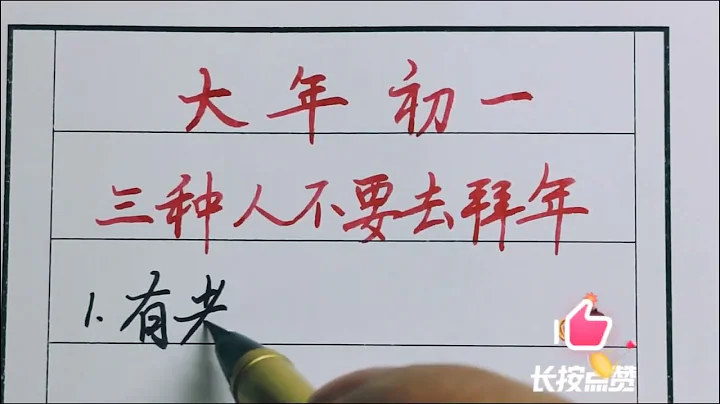 大年初一
三种人不要去拜年
1.有老
长按点赞